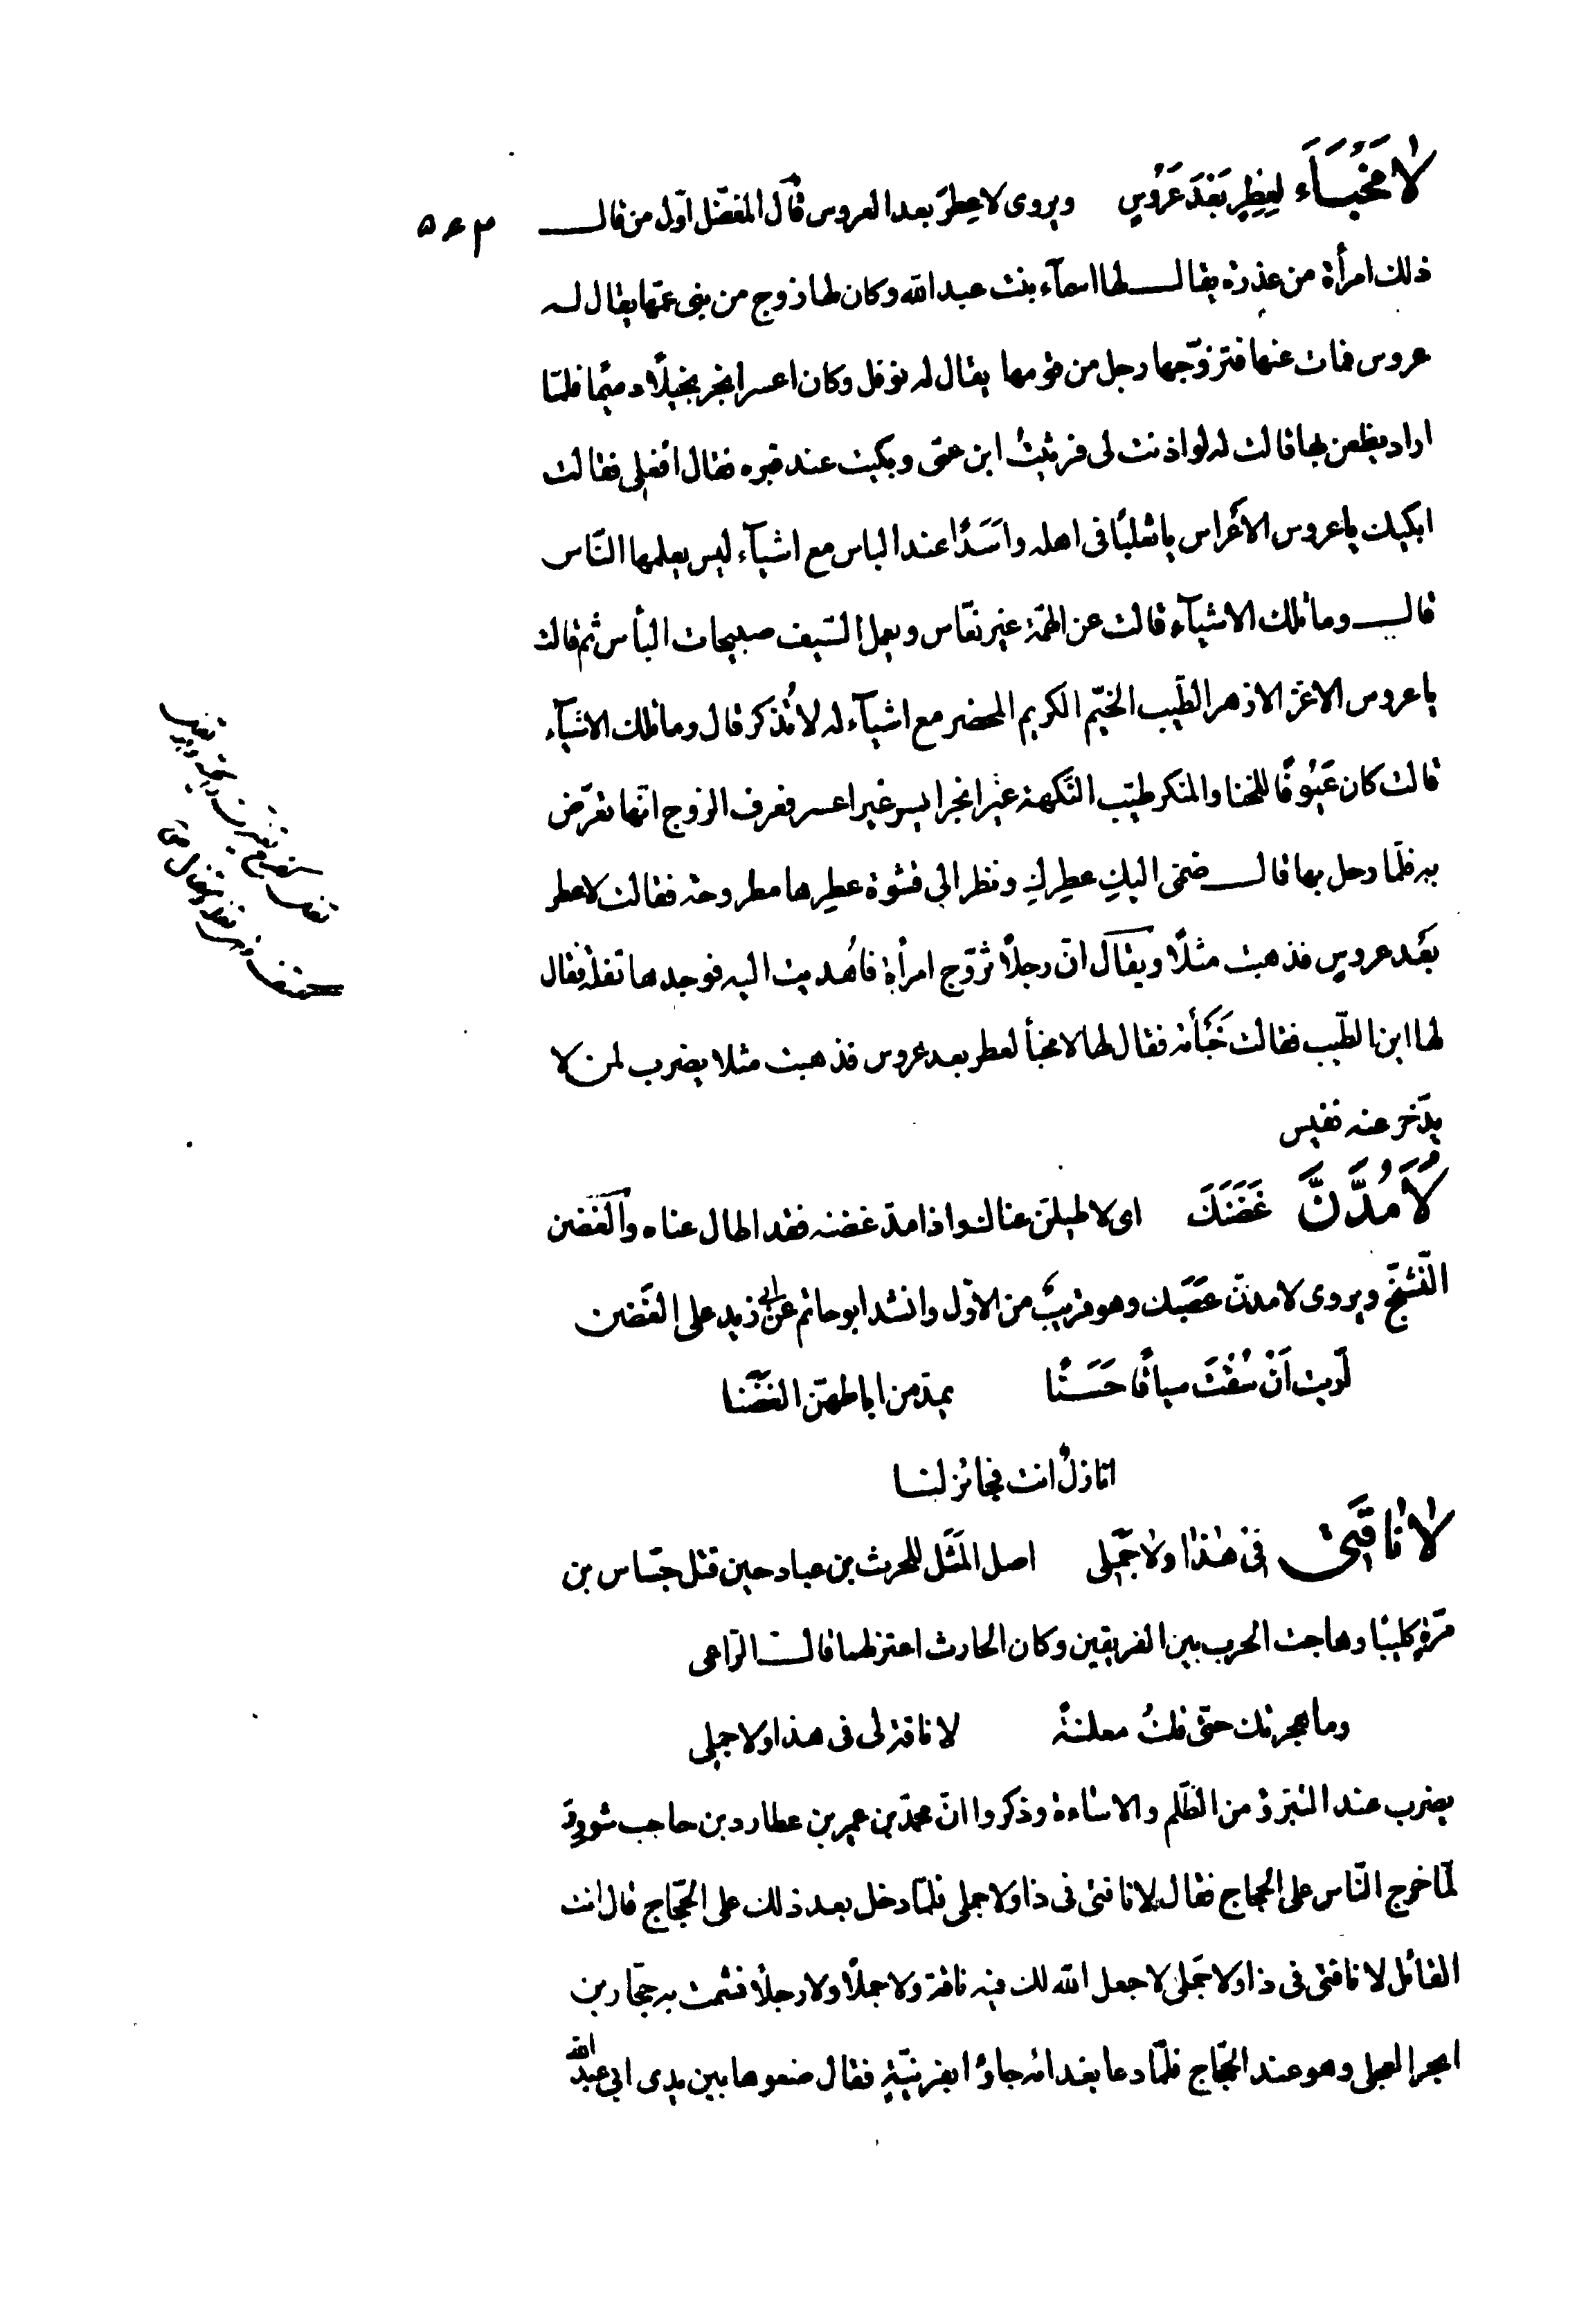 لا مَخْبَأَ لِعِطْرٍ بَعْدَ عَرُوسٍ ويروى لا عِطرَ بعد العروس قال المفضّل اوّل من قال
ذلك امرأة من عذرة يقال لها اسمآء بنت عبد الله وكان لها زوج من بنى عمّها يقال له
عروس فمات عنها فتزوّجها رجل من قومها يقال له نوفل وكان اعسر ابخر بخيلًا دميما فلمّا
اراد يظعن بها قالت له لو اذنت لى فرثيتُ ابن عمّى وبكيت عند قبره فقال افعلى فقالت
ابكيك يا عروس الاعْراس يا ثعلبًا فى اهله واَسَدًا عند الباس مع اشيآء ليس يعلمها النّاس
قال وما تلك الاشيآء قالت عن الهمّة غير نعّاس ويعمل السّيف صبيحات البأس ثم قالت
يا عروس الاغرّ الازهر الطّيب الخيّم الكريم المحضر مع اشيآء له لا تُذكر قال وما تلك الاشيآء
قالت كان عَيُوفًا للخنا والمنكر طيّب النّكهة غير ابخر ايسر غير اعسر فعرف الزوج انّها تعرّض
به فلمّا رحل بها قال ضمّى اليكِ عطركِ ونظر الى قشوة عطرها مطروحة فقالت لا عطر
بعْد عروس فذهبت مثلًا ويقال انّ رجلًا تزوّج امرأة فاُهديت اليه فوجدها تفلة فقال
لها اين الطّيب فقالت خَبَأته فقال لها لا مخبأ لعطر بعد عروس فذهبت مثلا يضرب لمن لا
يدّخر عنه نفيس
لَأَمُدَّنَّ غَضَنَكَ اى لاطيلنّ عناك واذا مدّ غضنه فقد اطال عناه والغضن
التّشنّج ويروى لامدنّ عَصَبك وهو قريبٌ من الاوّل وانشد ابو حاتم عن ابى زيد على الغَضن
اَرَيت اَنْ سُقْتَ سياقًا حَسَنًا يمدّ من اباطهنّ الغَضَنا
انازلٌ انت فخابز لنا
لا ناقَتى فى هٰذا ولا جَمَلى اصل المَثَل للحرث بن عباد حين قتل جسّاس بن
مرّة كليبًا وهاجت الحرب بين الفريقين وكان الحارث اعتزلهما قال الرّاعى
وما هجرتك حتّى قلتُ معلنةً لا ناقة لى فى هذا ولا جملى
يضرب عند التبرّؤ من الظّلم والاساءة وذكروا انّ محمّد بن عمير بن عطارد بن حاجب
لمّا خرج النّاس على الحجاج فقال لا ناقتى فى ذا ولا جملى فلمّا دخل بعد ذلك على الحجّاج قال انت
القائل لا ناقتى فى ذا ولا جَملى لا جعل الله لك فيه ناقة ولا جملًا ولا رجلًا فشمت به حجّار بن
ابجر العجلى وهو عند الحجّاج فلمّا دعا بغدائه جاؤا بفرنيّةٍ فقال ضعوها بين يدى ابى عبد الله